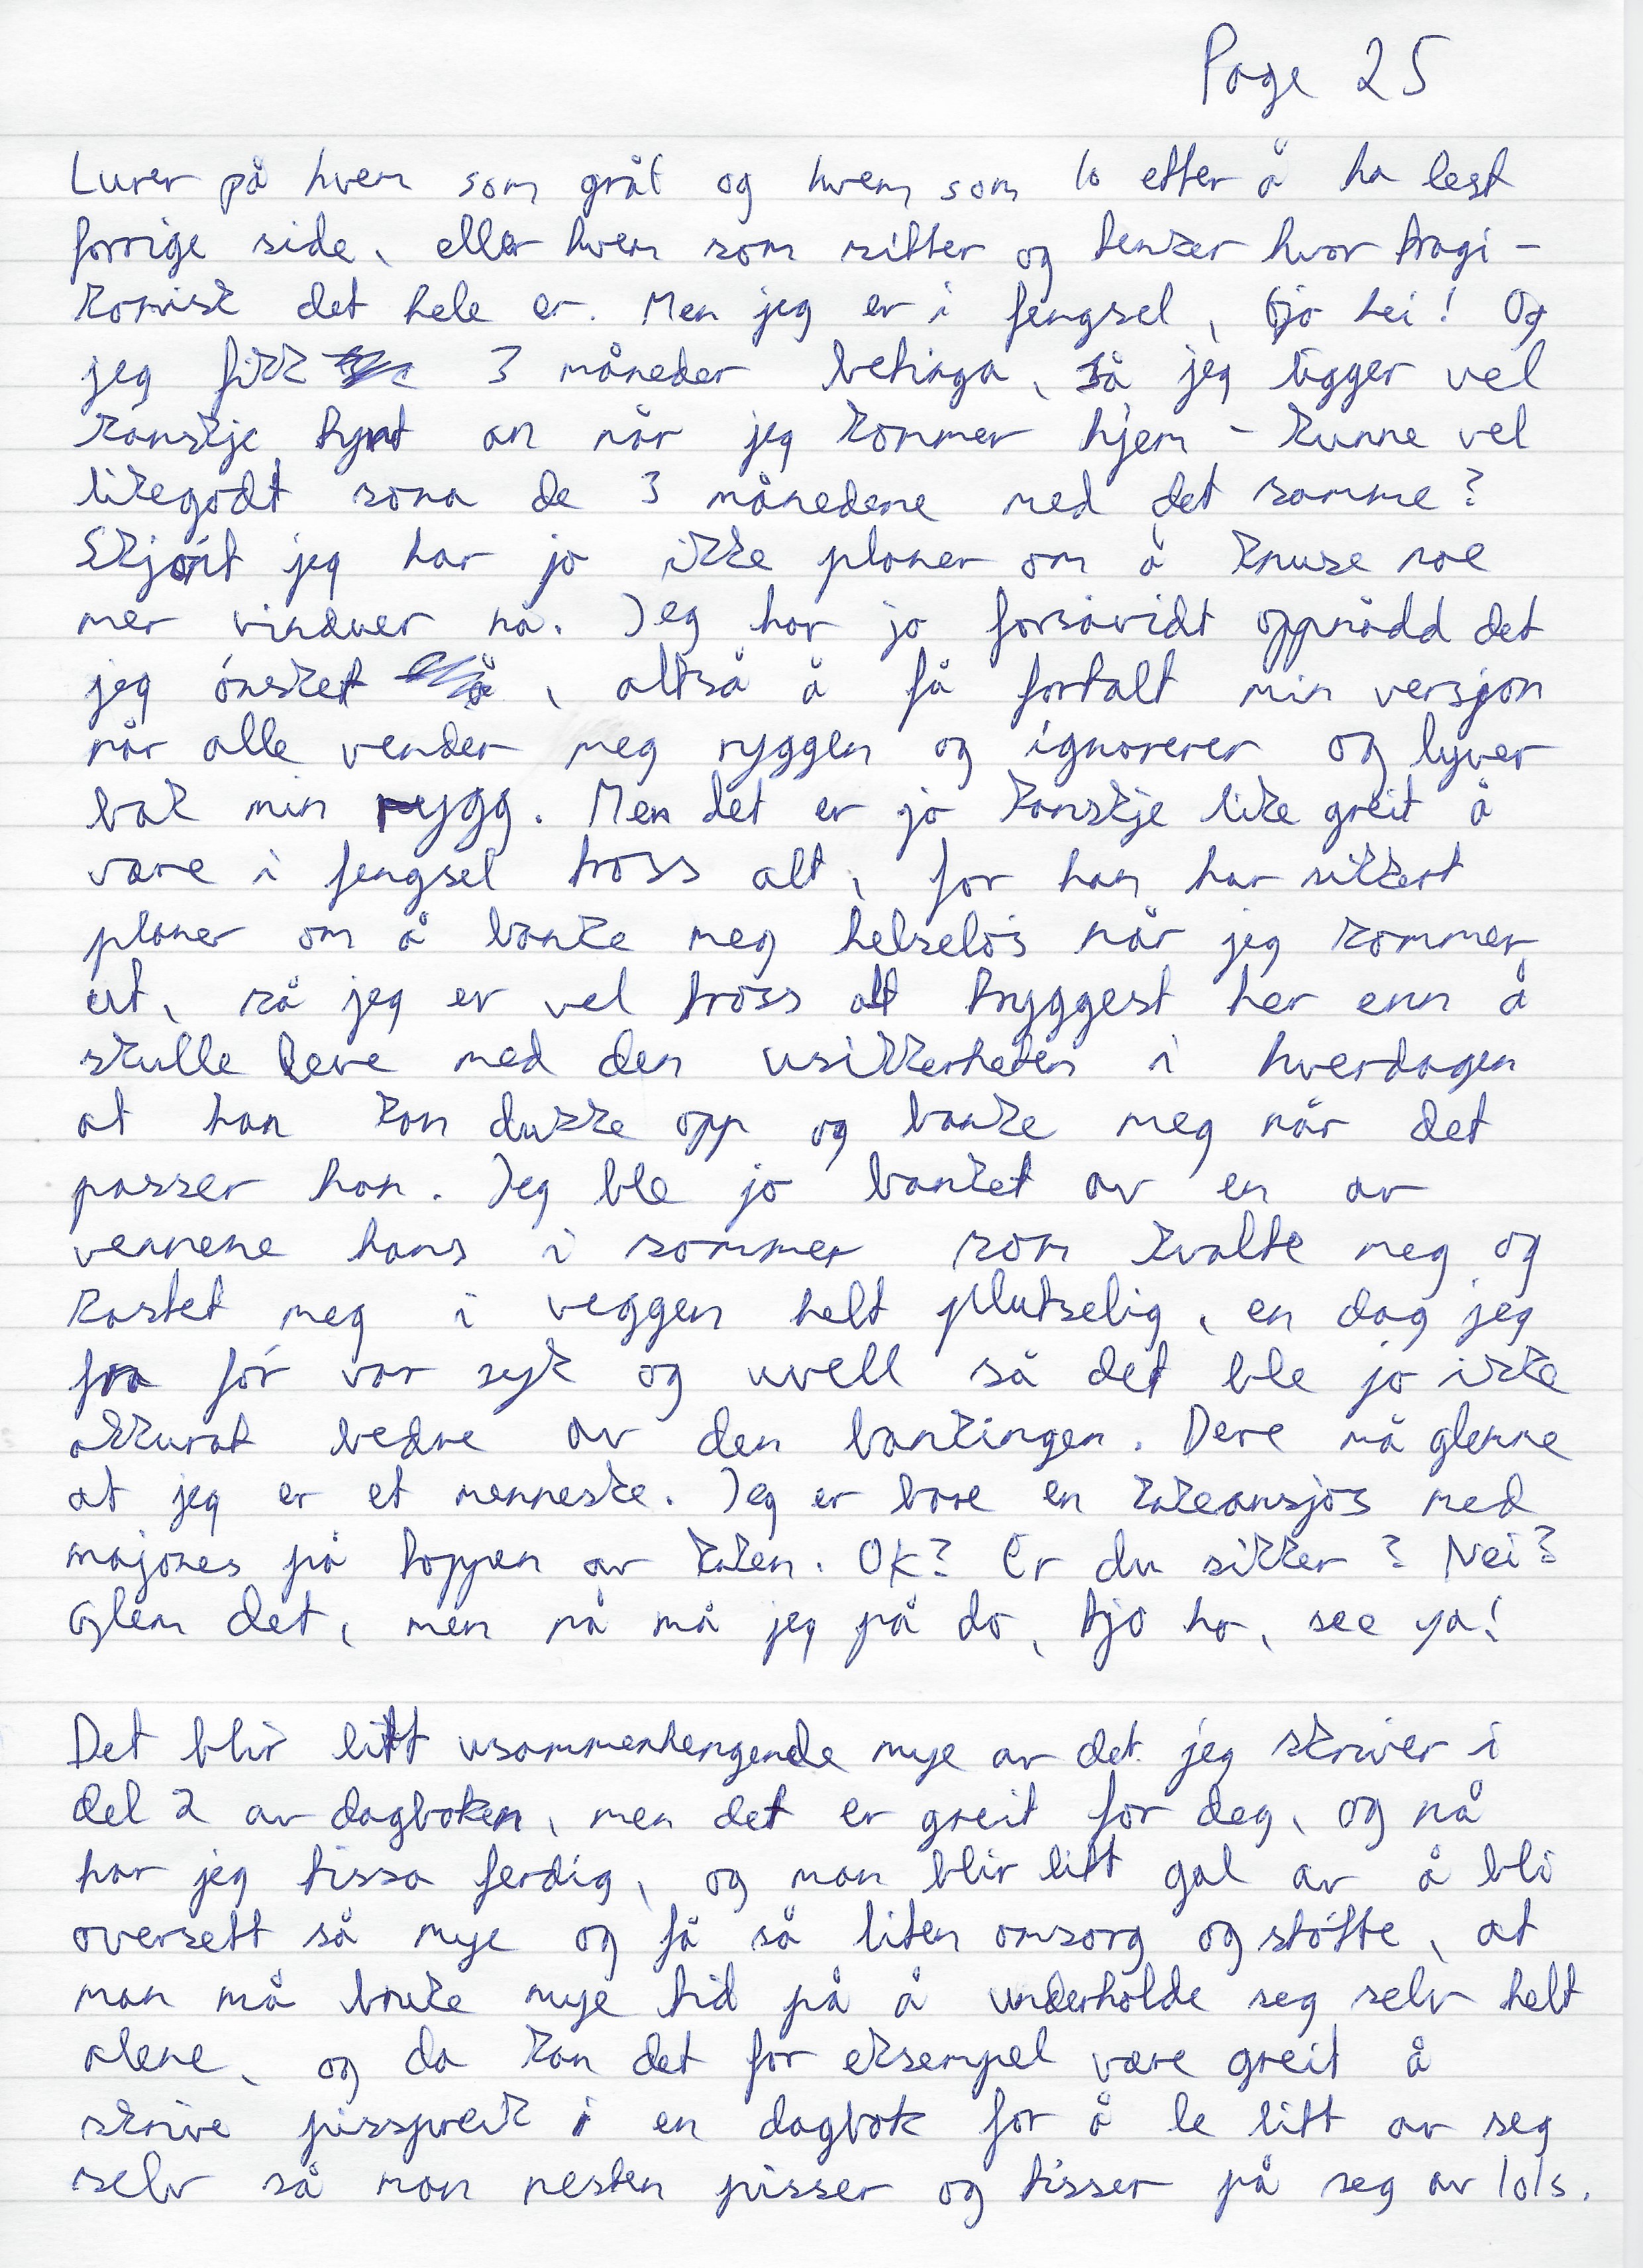 Page 25
Lurer på hvem som gråt og hvem som lo etter å ha lest
forrige side, eller hvem som sitter og tenker hvor tragi-
komisk det hele er. Men jeg er i fengsel, tjo hei! Og
jeg fikk 3 måneder betinga, så jeg ligger vel
kanskje tynt an når jeg kommer hjem - kunne vel
likegodt sona de 3 månedene med det samme?
Skjønt jeg har jo ikke planer om å knuse noe
mer vinduer nå. Jeg har jo forsåvidt oppnådd det
jeg ønsket, altså å få fortalt min versjon
når alle vender meg ryggen og ignorerer og lyver
bak min rygg. Men det er jo kanskje like greit å
være i fengsel tross alt, for han har sikkert
planer om å banke meg helseløs når jeg kommer
ut, så jeg er vel tross alt tryggest her enn å
skulle leve med den usikkerheten i hverdagen
at han kan dukke opp og banke meg når det
passer han. Jeg ble jo banket av en av
vennene hans i sommer som kvalte meg og
kastet meg i veggen helt plutselig, en dag jeg
fra før var syk og uvell så det ble jo ikke
akkurat bedre av den bankingen. Dere må glemme
at jeg er et menneske. Jeg er bare en kakeansjos med
majones på toppen av kaken. Ok? Er du sikker? Nei?
Glem det, men nå må jeg på do, tjo ho, see ya!
Det blir litt usammenhengende mye av det jeg skriver i
del 2 av dagboken, men det er greit for deg, og nå
har jeg tissa ferdig, og man blir litt gal av å bli
oversett så mye og få så liten omsorg og støtte, at
man må bruke mye tid på å underholde seg selv helt
alene, og da kan det for eksempel være greit å
skrive pisspreik i en dagbok for å le litt av seg
selv så man nesten pisser og tisser på seg av lols.